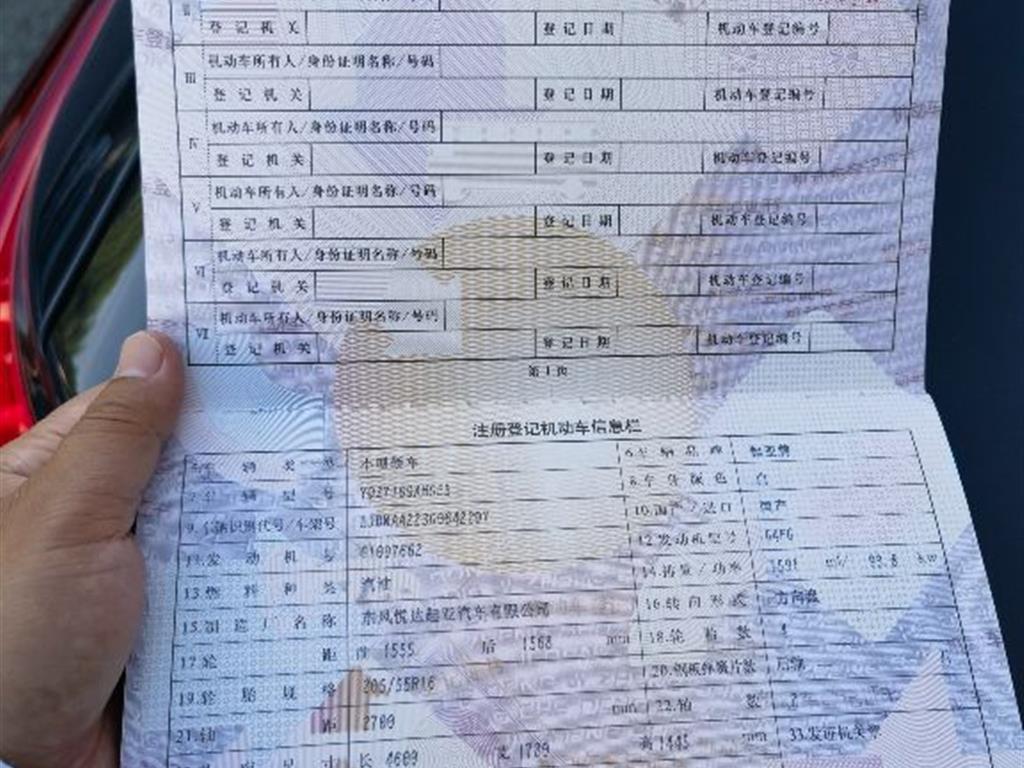 II
登记机关 登记日期 机动车登记编号
III 机动车所有人/身份证明名称/号码
登记机关 登记日期 机动车登记编号
IV 机动车所有人/身份证明名称/号码
登记机关 登记日期 机动车登记编号
V 机动车所有人/身份证明名称/号码
登记机关 登记日期 机动车登记编号
VI 机动车所有人/身份证明名称/号码
登记机关 登记日期 机动车登记编号
VII 机动车所有人/身份证明名称/号码
登记机关 登记日期 机动车登记编号
第1页
注册登记机动车信息栏
车辆类型 轿车 6.车辆品牌
7.车辆型号 8.车身颜色 白
9.车辆识别代号/车架号 10.国产/进口 国产
11.发动机号 12.发动机型号 G4FG
13.燃料种类 汽油 14.排量/功率 1591 ml/ kw
15.制造厂名称 东风悦达起亚汽车有限公司 16.转向形式 方向盘
17.轮距 前 1555 后 1568 mm 18.轮胎数 4
19.轮胎规格 205/55R16 20.钢板弹簧片数 后轴
21.轴距 2700 mm 22.轴数 2
长 4600 宽 1780 高 1445 mm 33.发证机关章